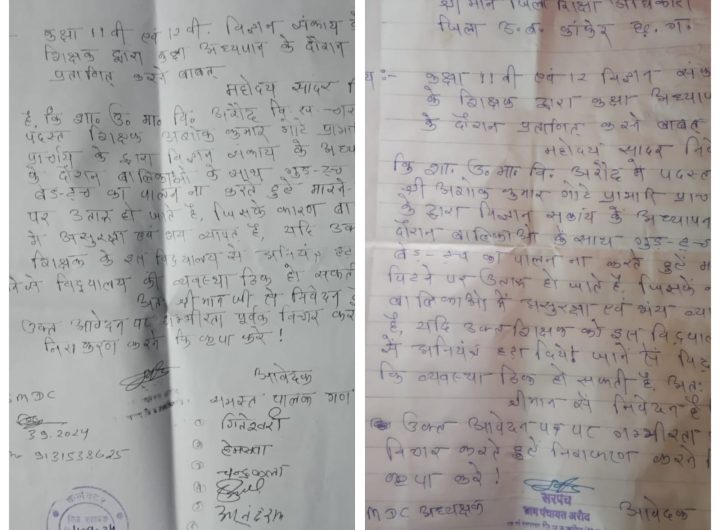 कक्षा 11 वी एवं 12 वी. विज्ञान संकाय के
शिक्षक द्वारा कक्षा अध्यापन के दौरान
प्रताणित करने बाबत्
महोदय सादर
है. कि शा. उ. मा. वि. अरौद वि. ख.
पदस्त शिक्षक अशोक कुमार गोटे
प्राचार्य के द्वारा विज्ञान संकाय के
के दौरान बालिकाओं के साथ गुड-टच
बेड-टच का पालन ना करते हुए मारने
पर उतारू हो जाते है, जिसके कारण
में असुरक्षा एवं भय व्याप्त है, यदि उक्त
शिक्षक के इस विद्यालय से अनियंत्र
विद्यालय की व्यवस्था ठिक हो सकती
अतः श्रीमान जी, से निवेदन
उक्त आवेदन पर गम्भीरता पूर्वक विचार कर
निराकरण करने कि कृपा करे !
आवेदक
समस्त पालक गण
MDC
3.9.2024
9131538625
① गितेश्वरी
② हेमलता
③ चन्द्रकला
④
⑤
कलेक्टर
श्रीमान जिला शिक्षा अधिकारी
जिला उ. ब. कांकेर छ. ग.
:- कक्षा 11 वी एवं 12 विज्ञान
के शिक्षक द्वारा कक्षा
के दौरान प्रताणित करने बाबत
महोदय सादर
कि शा. उ. मा. वि. अरौद में पदस्त
श्री अशोक कुमार गोटे प्रभारि
के द्वारा विज्ञान संकाय के अध्यापन
दौरान बालिकाओं के साथ गुड-टच
बेड-टच का पालन ना करते हुए
पिटने पर उतारू हो जाते है, जिसके
बालिकाओं में असुरक्षा एवं भय
है, यदि उक्त शिक्षक को इस
से अनियंत्र हटा दिया जाने से
कि व्यवस्था ठिक हो सकती है, अतः
श्रीमान से निवेदन है
उक्त आवेदन पत्र पर गम्भीरता
विचार करते हुए निराकरण करने
कृपा करे !
सरपंच
ग्राम पंचायत अरौद
MDC अध्यक्षक
आवेदक